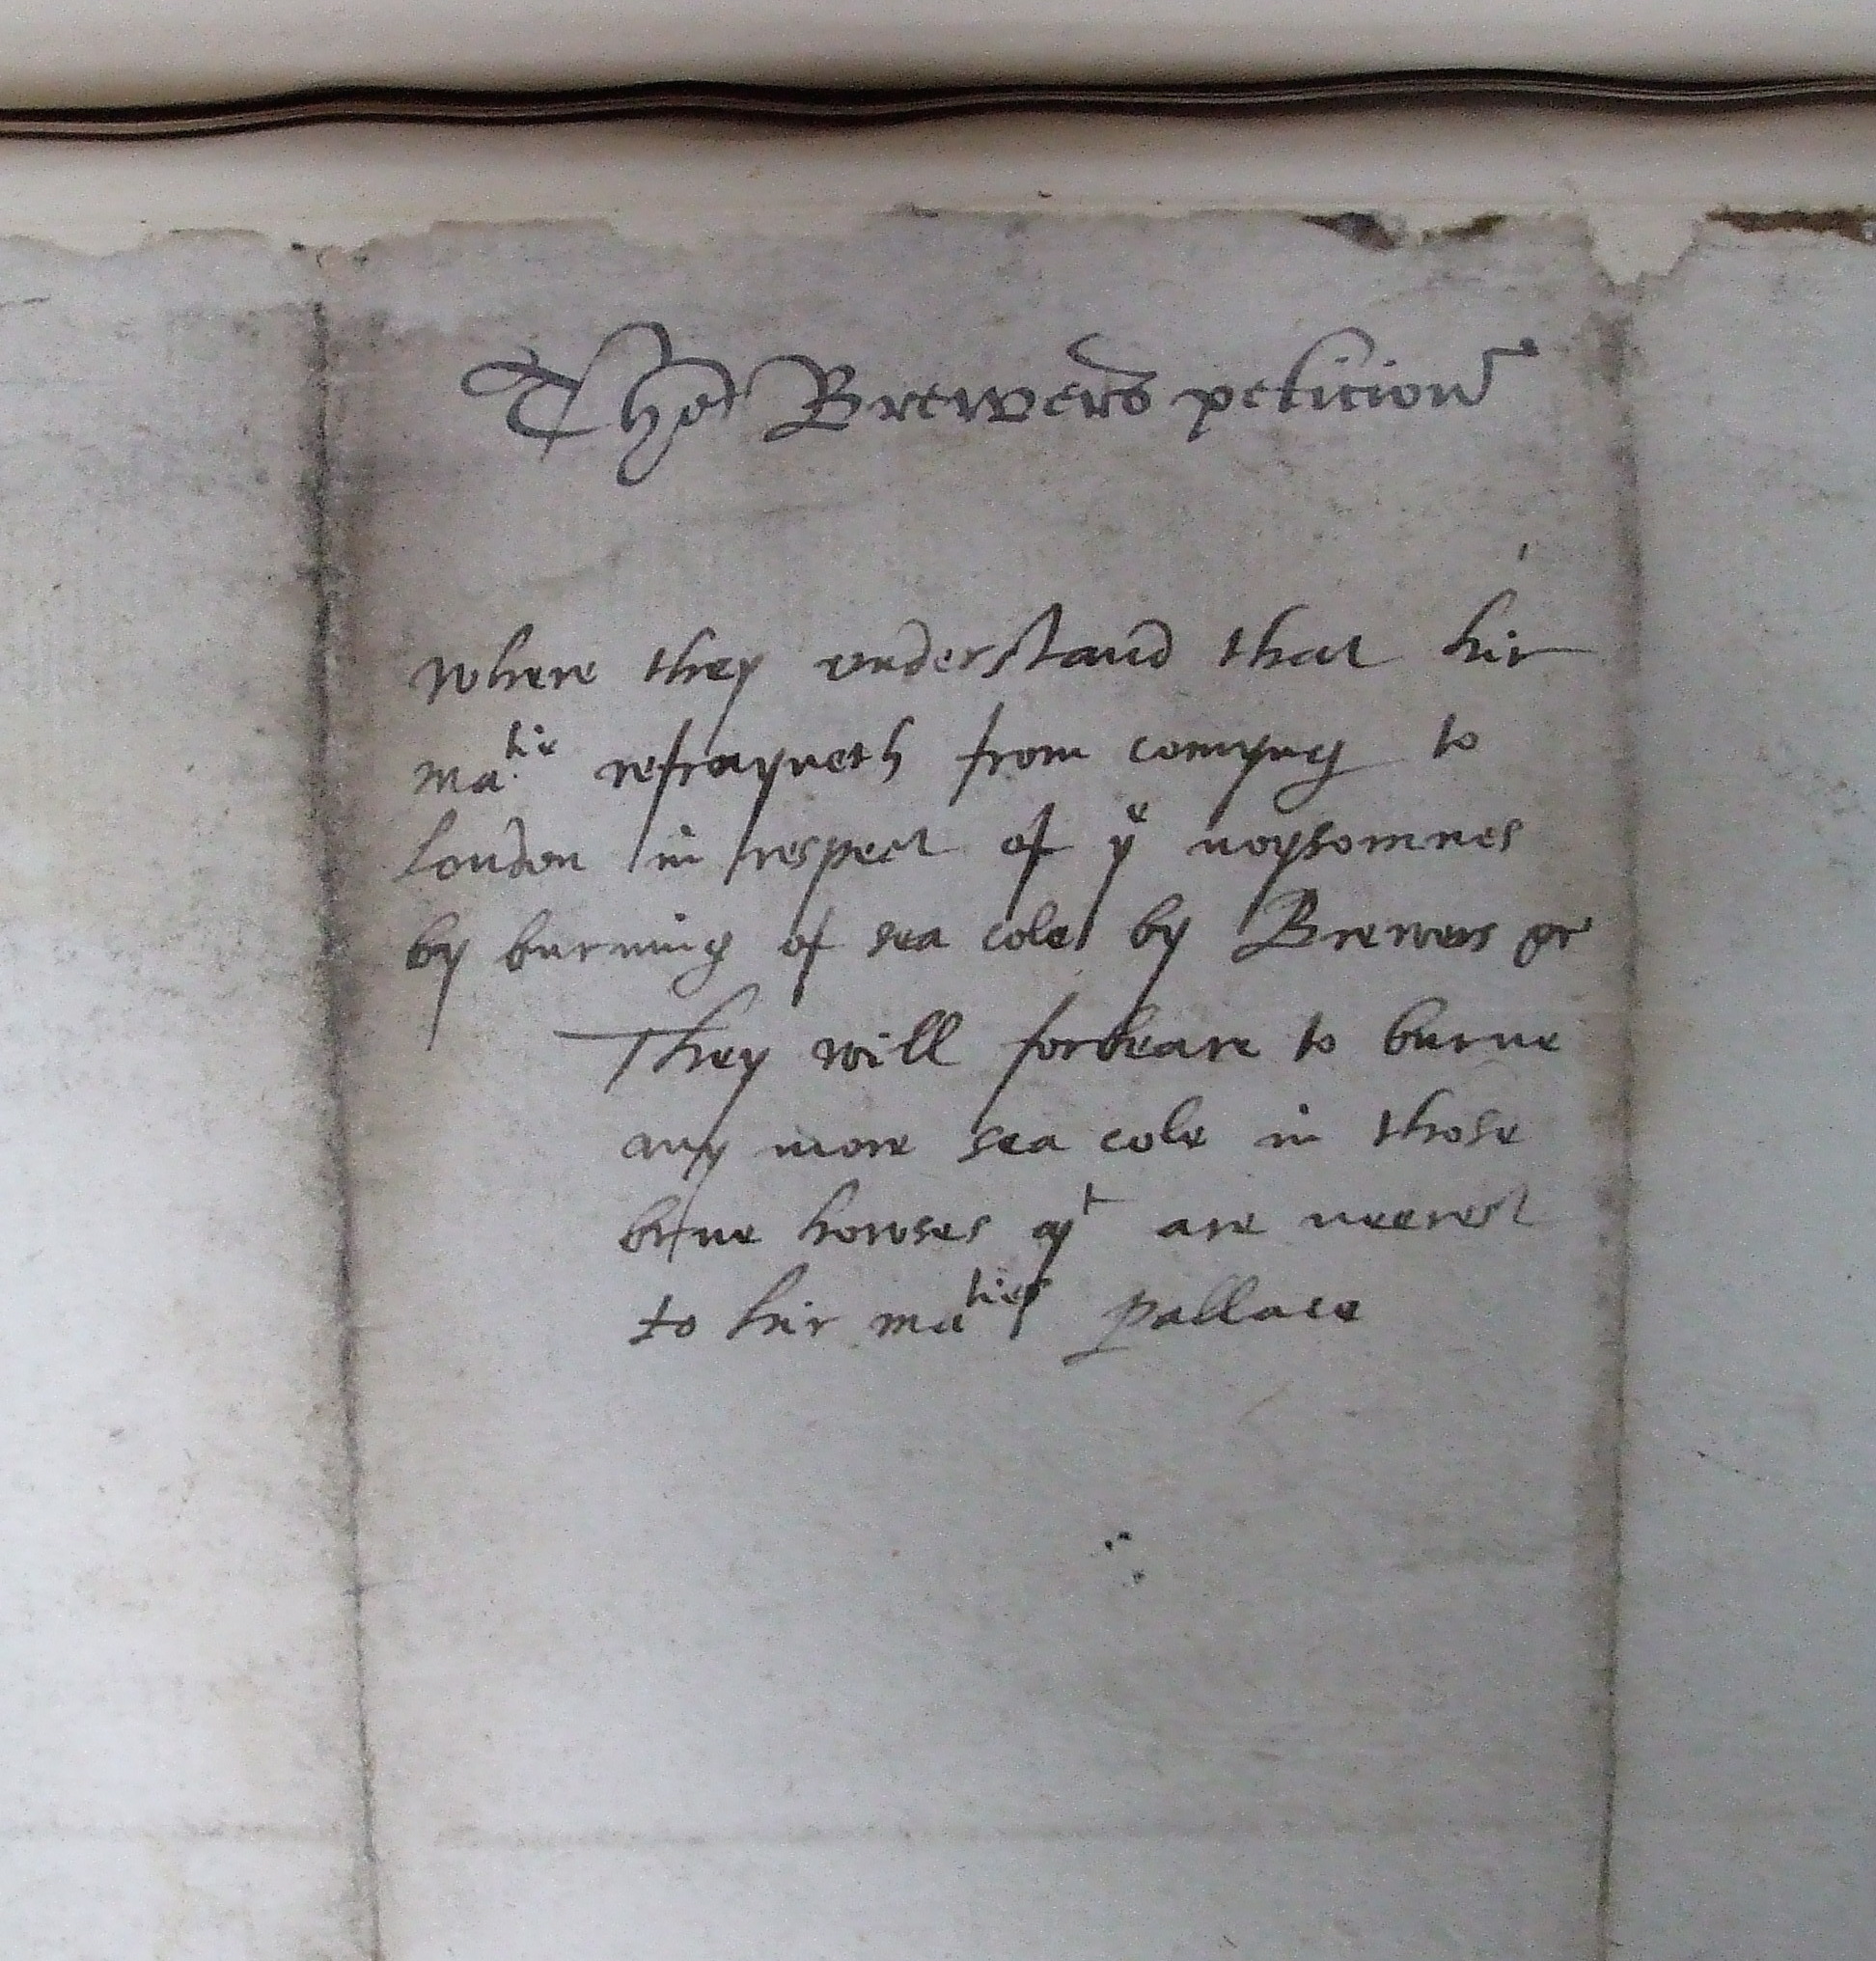 The Brewers peticion
Where they vnderstand that hir
matie refrayneth from comyng to
London in respect of ye noysomnes
by burning of sea cole by Brewers &c
They will forbeare to burne
any more sea cole in those
brue howses yt are neerest
to hir maties pallace